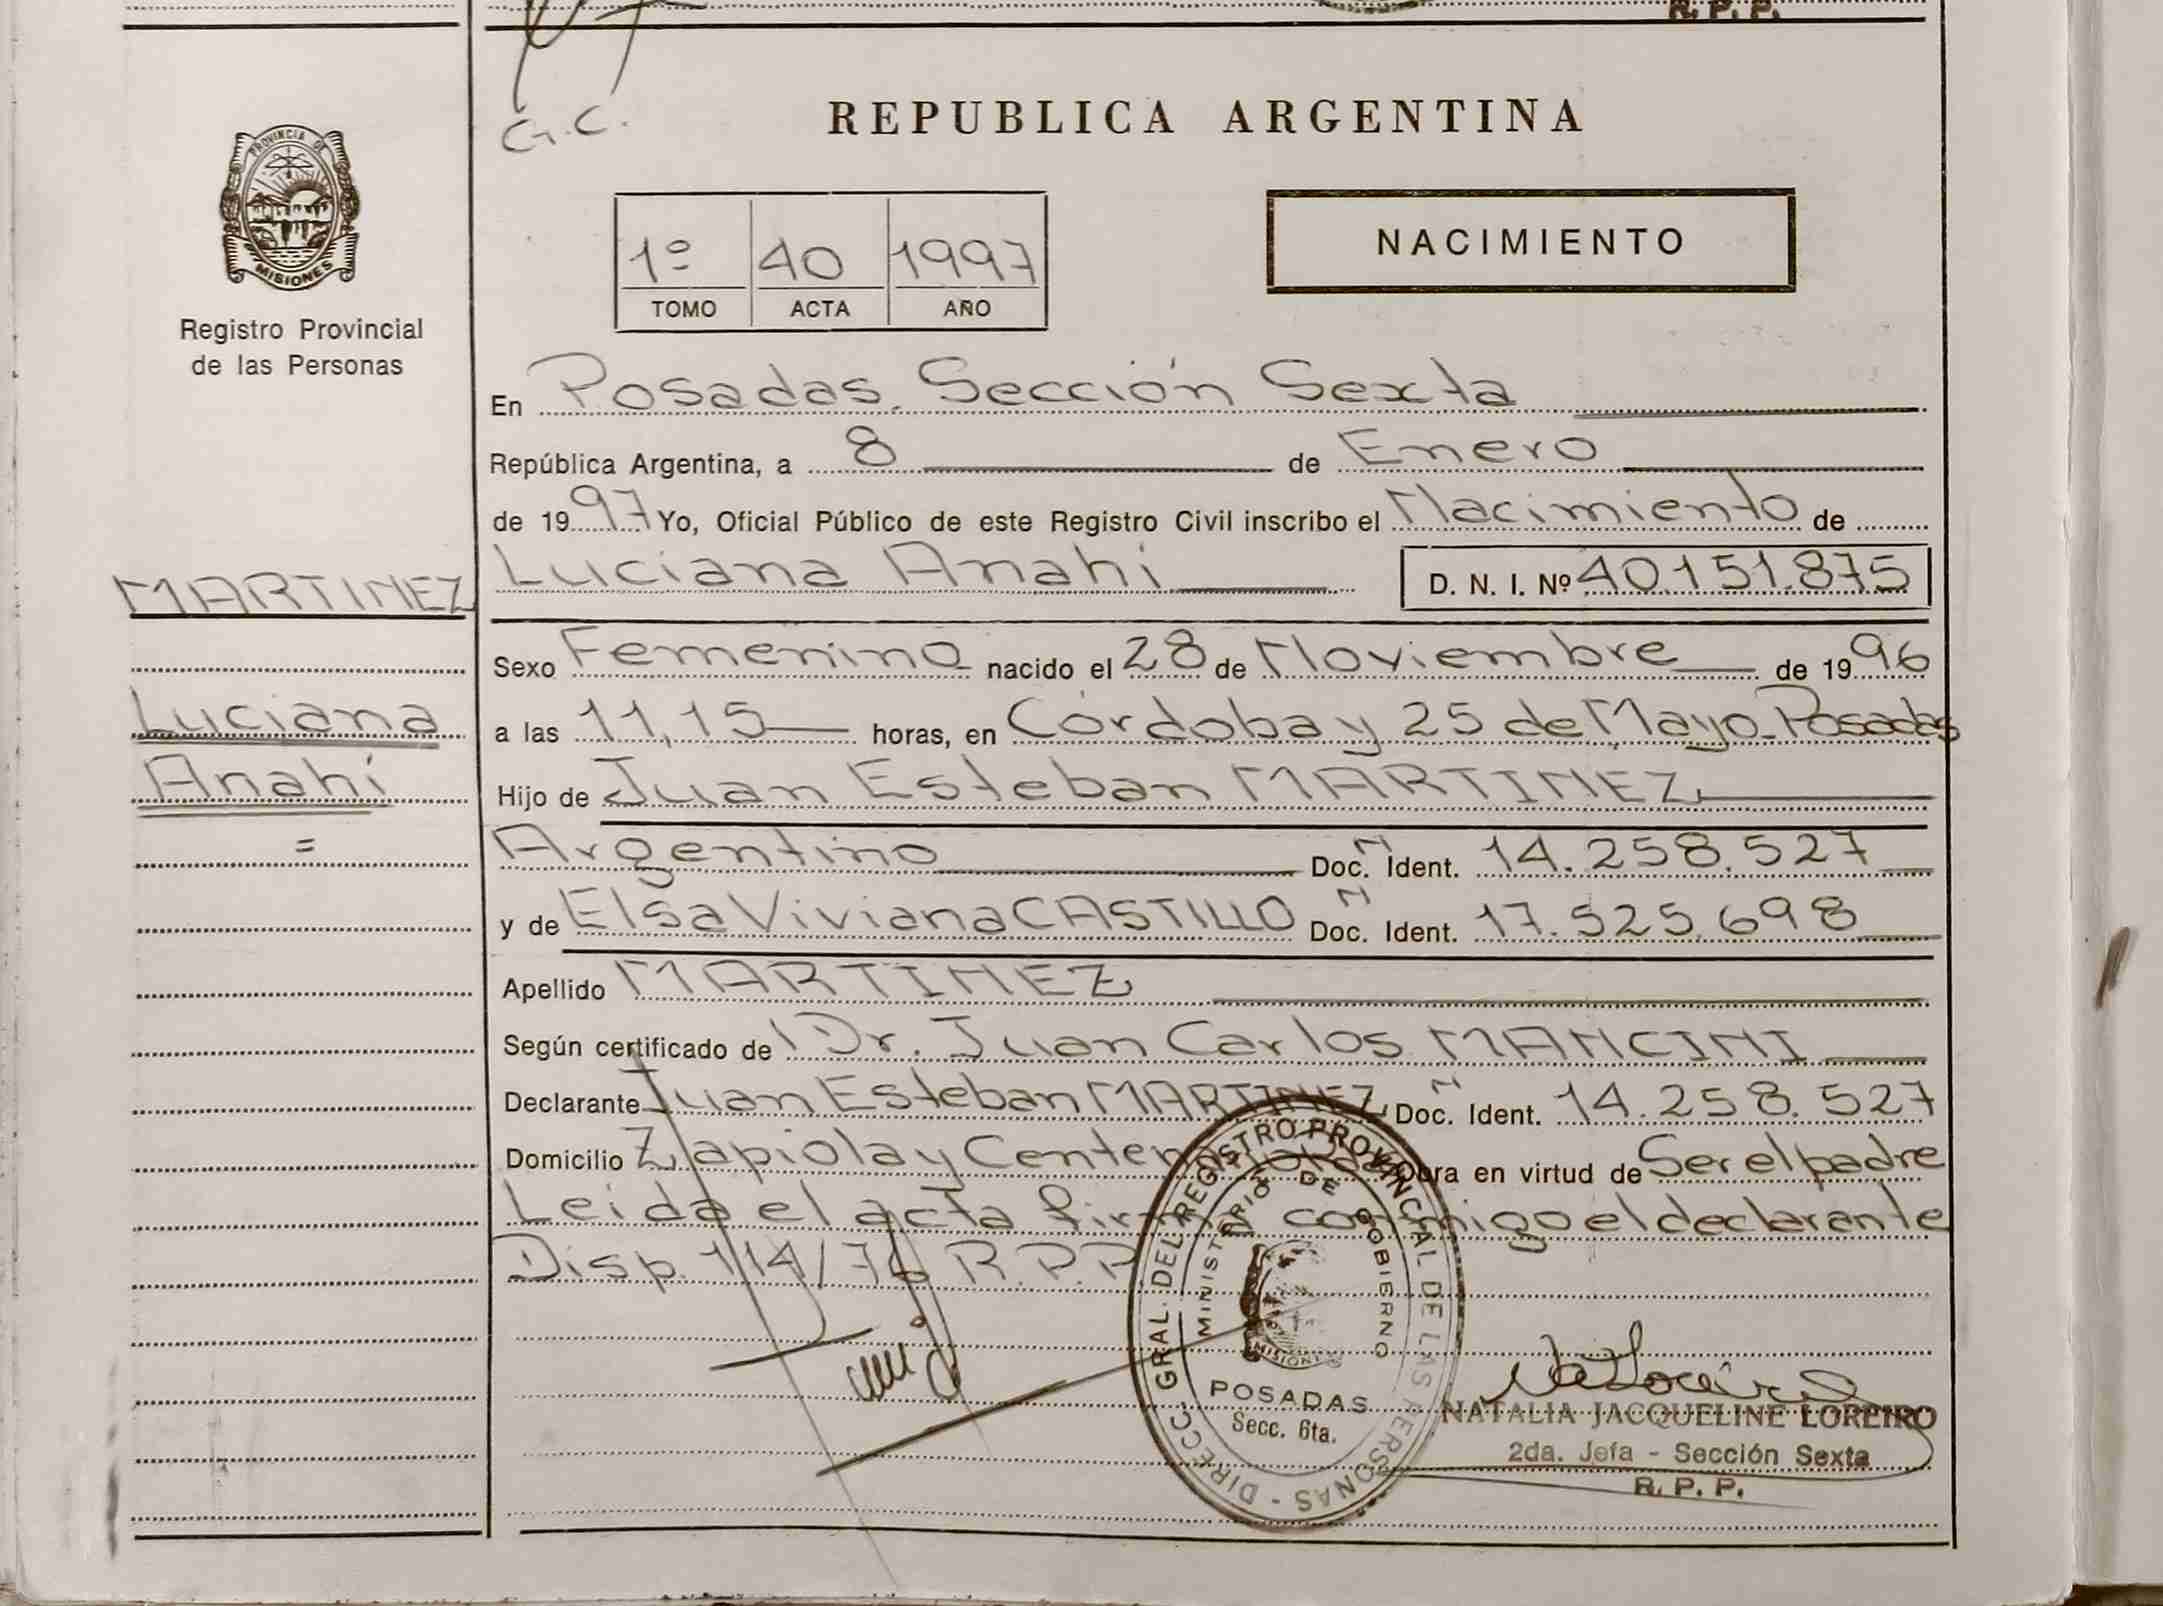 R. P. P.
G.C.
PROVINCIA DE
MISIONES
Registro Provincial
de las Personas
REPUBLICA ARGENTINA
1º 40 1997
TOMO ACTA AÑO
NACIMIENTO
En Posadas. Sección Sexta
República Argentina, a 8 de Enero
de 1997 Yo, Oficial Público de este Registro Civil inscribo el Nacimiento de
MARTINEZ
Luciana Anahí D. N. I. Nº 40.151.875
Sexo Femenino nacido el 28 de Noviembre de 1996
Luciana
a las 11,15 horas, en Córdoba y 25 de Mayo. Posadas
Anahí
Hijo de Juan Esteban MARTINEZ
=
Argentino Doc. N Ident. 14.258.527
y de Elsa Viviana CASTILLO Doc. N Ident. 17.525.698
Apellido MARTINEZ
Según certificado de Dr. Juan Carlos MANCINI
Declarante Juan Esteban MARTINEZ Doc. N Ident. 14.258.527
Domicilio Zapiola y Obra en virtud de Ser el padre
Leida el acta firma conmigo el declarante
Disp. 114/76 R.P.P.
DIRECC. GRAL. DEL REGISTRO PROVINCIAL DE LAS PERSONAS -
MINISTERIO DE GOBIERNO
MISIONES
POSADAS
Secc. 6ta.
NATALIA JACQUELINE LOREIRO
2da. Jefa - Sección Sexta
R. P. P.